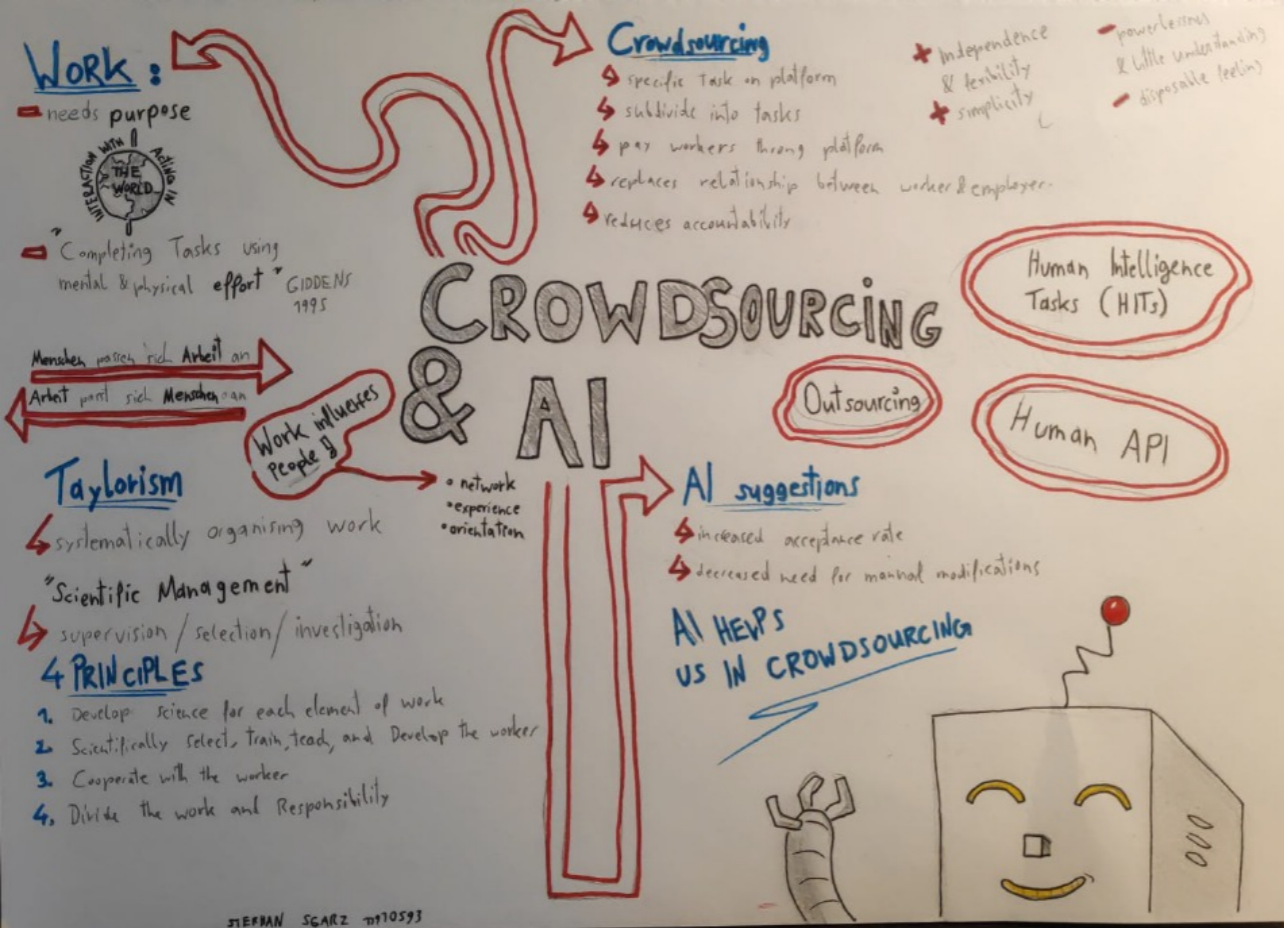 WORK:
needs purpose
INTERACTION WITH
ACTING IN
THE
WORLD
"Completing Tasks using
mental & physical effort" GIDDENS
1995
Menschen passen sich Arbeit an
Arbeit passt sich Menschen an
Work influences
People!
• network
• experience
• orientation
Taylorism
systematically organising work
"Scientific Management"
supervision/selection/investigation
4 PRINCIPLES
1. Develop science for each element of work
2. Scientifically select, train, teach, and Develop the worker
3. Cooperate with the worker
4. Divide the work and Responsibility
CROWDSOURCING
& AI
Crowdsourcing
specific Task on platform
subdivide into tasks
pay workers throug platform
replaces relationship between worker & employer.
reduces accountability
+ Independence
& flexibility
+ simplicity
- powerlessness
& little understanding
- disposable feeling
Human Intelligence
Tasks (HITs)
Outsourcing
Human API
AI suggestions
increased acceptance rate
decreased need for manual modifications
AI HELPS
US IN CROWDSOURCING
SGARZ